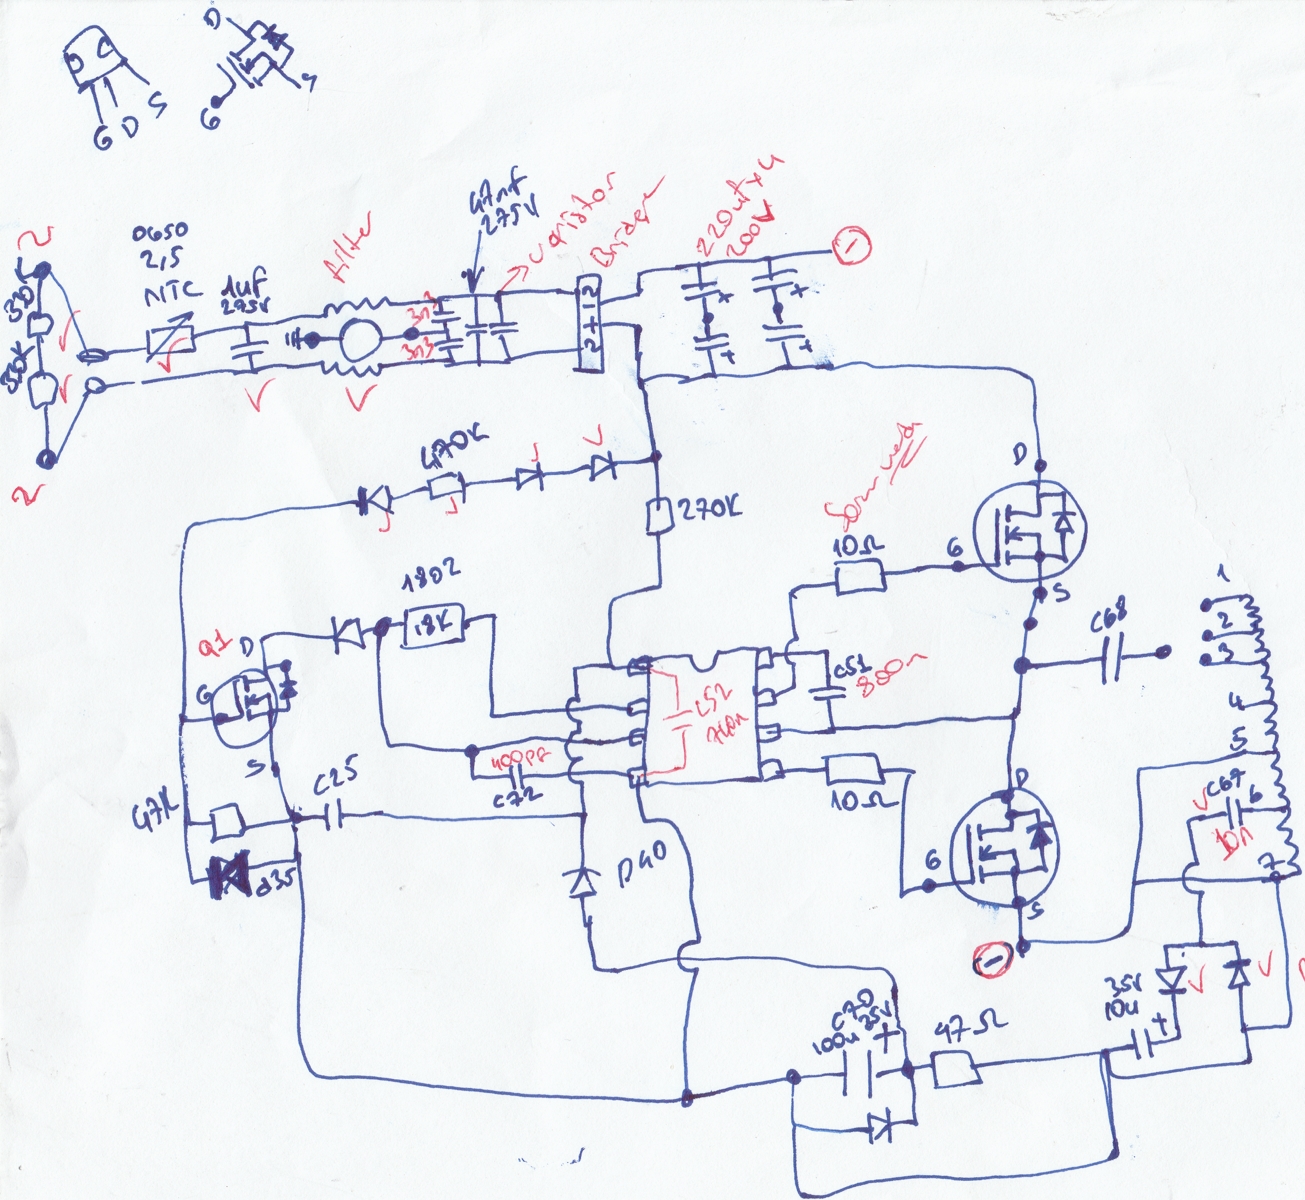 D
S
G
G D S
47nf
275V
varistor
Bridge
220uf x 4
200V
−
2
330K
330K
2
0650
2,5
NTC
1uf
275V
filter
3n3
3n3
2 + 12
470K
270K
10Ω
G
D
S
1802
18K
Q1
D
G
S
C52
C51
C68
1
2
3
4
5
6
7
400pf
C72
C25
47K
d35
D40
10Ω
D
G
S
−
C67
10n
35V
10u
C70
100u 35V
+
47Ω
+